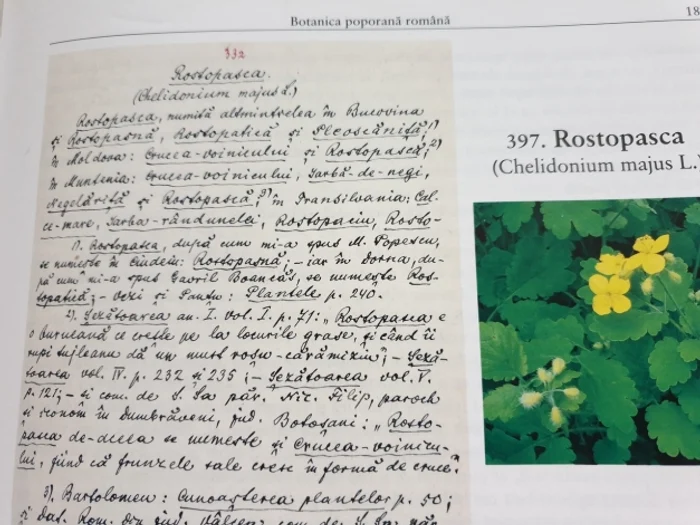 Botanica poporană română
18
332
Rostopasca.
(Chelidonium majus L.)
Rostopasca, numită altmintrelea în Bucovina
și Rostopasnă, Rostopatică și Pleoscăniță;¹)
în Moldova: Crucea-voinicului și Rostopască;²)
în Muntenia: Crucea-voinicului, Iarbă-de-negi,
Negelăriță și Rostopască;³) în Transilvania: Cel-
ce-mare, Iarba-rândunelei, Rostopaciu, Rosto-
1). Rostopasca, după cum mi-a spus M. Popescu,
se numește în Ciudeiu: Rostopasnă; – iar în Dorna, du-
pă cum mi-a spus Gavril Boancăș, se numește Ros-
topatică; – vezi și Panțu: Plantele p. 240.
2). Șezătoarea an. I. vol. I. p. 71: „Rostopasca e
o burueană ce crește pe la locurile grase, și când îi
rupi tujleanu dă un must roșu-cărămiziu"; – Șeză-
toarea vol. IV. p. 232 și 235; – Șezătoarea vol. V.
p. 121; – și com. de S. Sa păr. Nic. Filip, paroch
și iconom în Dumbrăveni, jud. Botoșani: „Rosto-
pasca de-aceea se numește și Crucea-voinicu-
lui, fiind că frunzele sale cresc în formă de cruce."
3). Bartolomeu: Cunoașterea plantelor p. 50;
și dat. Rom. din jud. Vâlcea, com. de S. Sa păr.
397. Rostopasca
(Chelidonium majus L.)